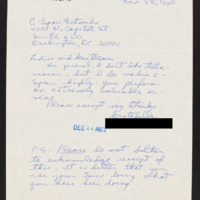 Nov. 22, 1990
C-Span Networks
400 N. Capitol St
Suite 650
Washington, DC 20001
Ladies and Gentlemen
In general I don't like tele-
vision, but I do value C-
Span. Simply you perform
an extremely valuable ser-
vice.
Please accept my thanks
DEC 11
P.S. Please do not bother
to acknowledge receipt of
this, it is better that you
use your time doing what
you have been doing.